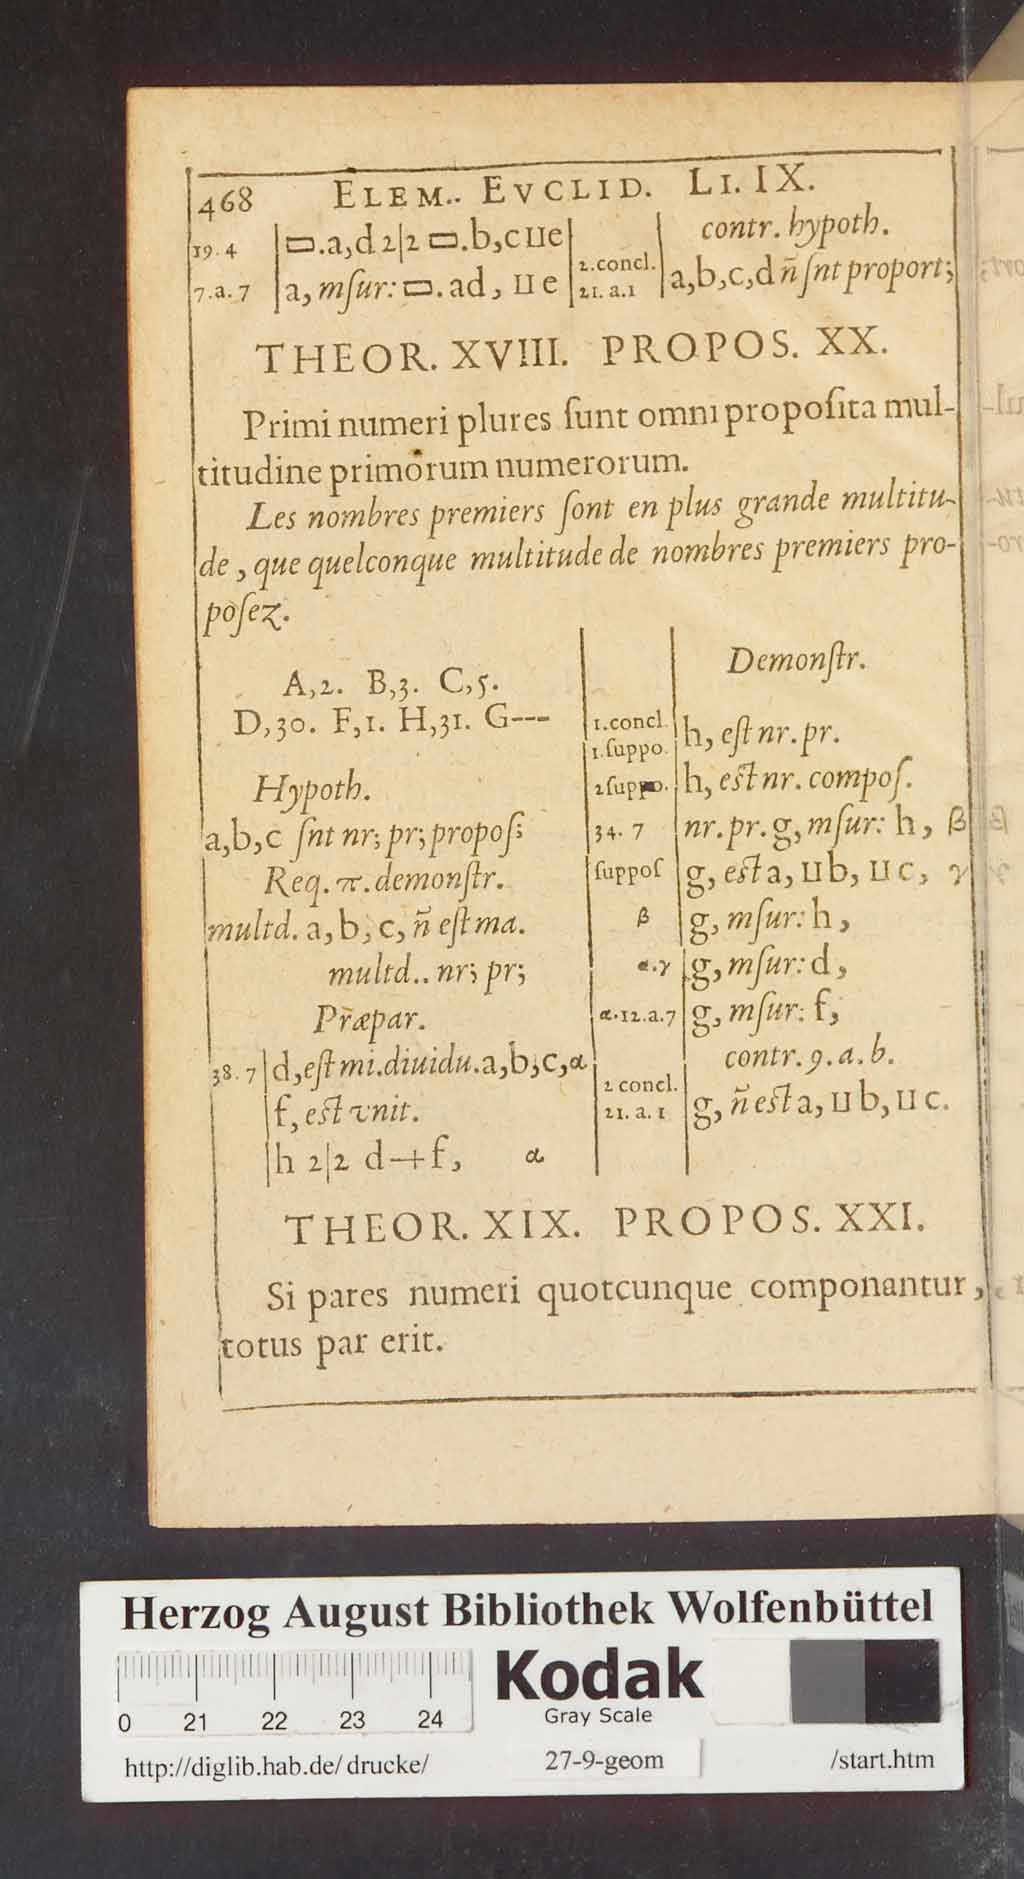 468 ELEM.. EVCLID. LI. IX.
19. 4 | ▭.a,d 2|2 ▭.b,c ııe |
7. a. 7 | a, mſur: ▭. ad, ıı e |
contr. hypoth.
2.concl.
21. a.1 | a,b,c,d ñ ſnt proport;
THEOR. XVIII. PROPOS. XX.
Primi numeri plures ſunt omni propoſita mul-
titudine primorum numerorum.
Les nombres premiers ſont en plus grande multitu-
de, que quelconque multitude de nombres premiers pro-
poſez.
A,2. B,3. C,5.
D,30. F,1. H,31. G---
Hypoth.
a,b,c ſnt nr; pr; propoſ:
Req. π. demonſtr.
multd. a, b, c, ñ eſt ma.
multd.. nr; pr;
Præpar.
38. 7 | d, eſt mi. diuidu. a,b,c, α
| f, eſt vnit.
| h 2|2 d+f, α
Demonſtr.
1. concl.
1. ſuppo. | h, eſt nr. pr.
2 ſuppo. | h, eſt nr. compoſ.
34. 7 | nr. pr. g, mſur: h, β
ſuppoſ | g, eſt a, ıı b, ıı c, γ
β | g, mſur: h,
α.γ | g, mſur: d,
α.12.a.7 | g, mſur: f,
contr. 9. a. b.
2 concl.
21. a. 1 | g, ñ eſt a, ıı b, ıı c.
THEOR. XIX. PROPOS. XXI.
Si pares numeri quotcunque componantur,
totus par erit.
Herzog August Bibliothek Wolfenbüttel
0 21 22 23 24
Kodak
Gray Scale
http://diglib.hab.de/ drucke/ 27-9-geom /start.htm